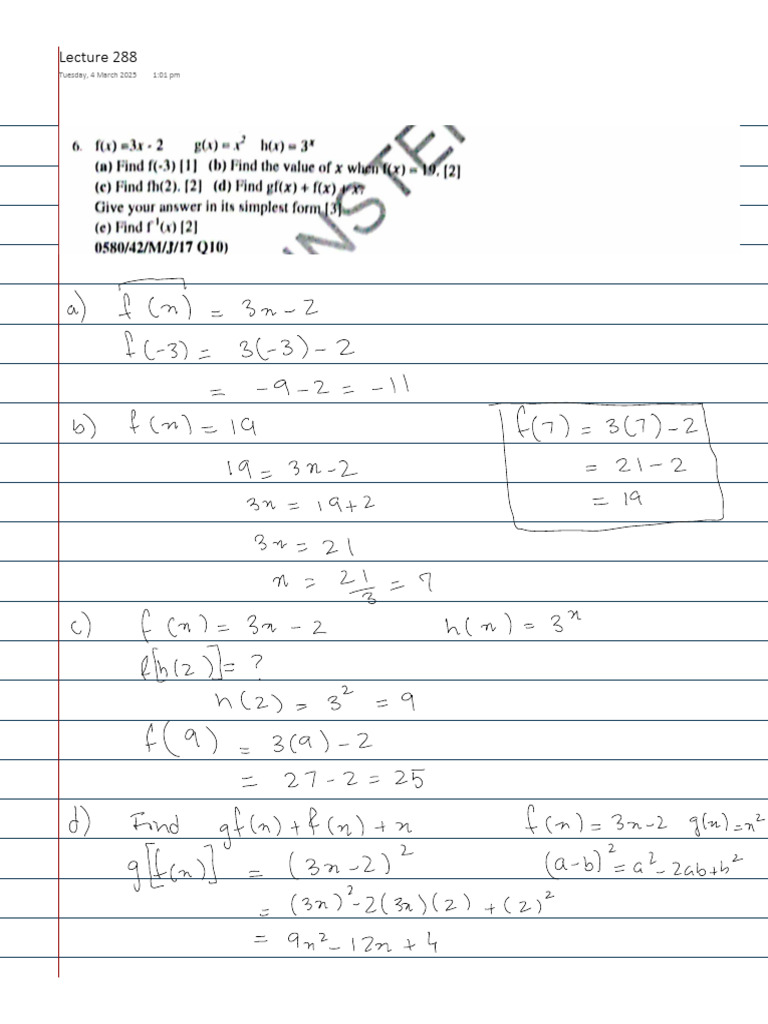 Lecture 288
Tuesday, 4 March 2025 1:01 pm
6. f(x) =3x - 2 g(x) = x² h(x) = 3ˣ
(a) Find f(-3) [1] (b) Find the value of x when f(x) = 19. [2]
(c) Find fh(2). [2] (d) Find gf(x) + f(x) + x.
Give your answer in its simplest form.[3]
(e) Find f⁻¹(x) [2]
0580/42/M/J/17 Q10)
a) f(x) = 3x - 2
f(-3) = 3(-3) - 2
= -9 - 2 = -11
b) f(x) = 19
19 = 3x - 2
3x = 19 + 2
3x = 21
x = 21/3 = 7
f(7) = 3(7) - 2
= 21 - 2
= 19
c) f(x) = 3x - 2 h(x) = 3ˣ
f[h(2)] = ?
h(2) = 3² = 9
f(9) = 3(9) - 2
= 27 - 2 = 25
d) Find gf(x) + f(x) + x f(x) = 3x - 2 g(x) = x²
g[f(x)] = (3x - 2)² (a-b)² = a² - 2ab + b²
= (3x)² - 2(3x)(2) + (2)²
= 9x² - 12x + 4